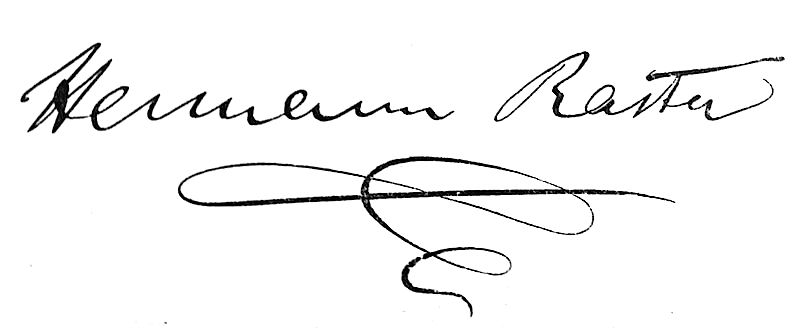 Hermann Raster